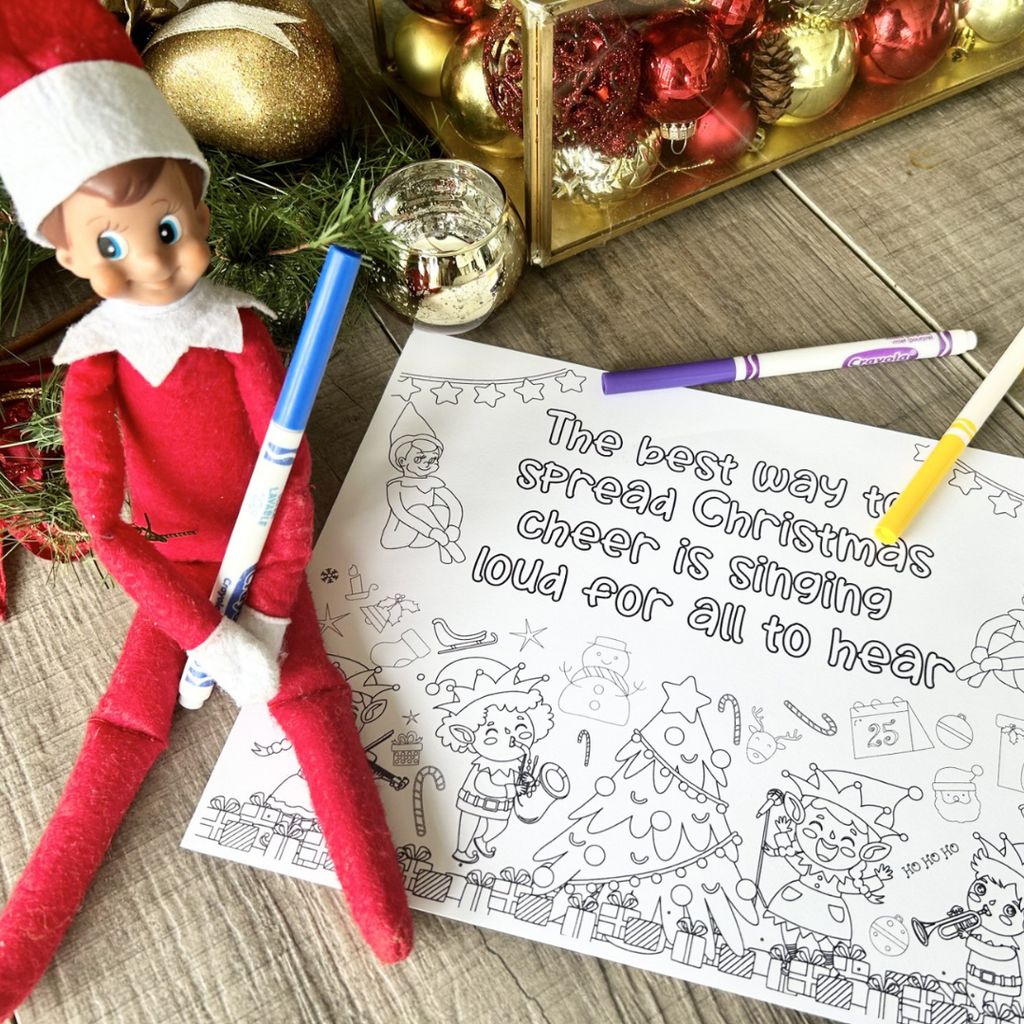 The best way to
spread Christmas
cheer is singing
loud for all to hear
Crayola
25
HO HO HO